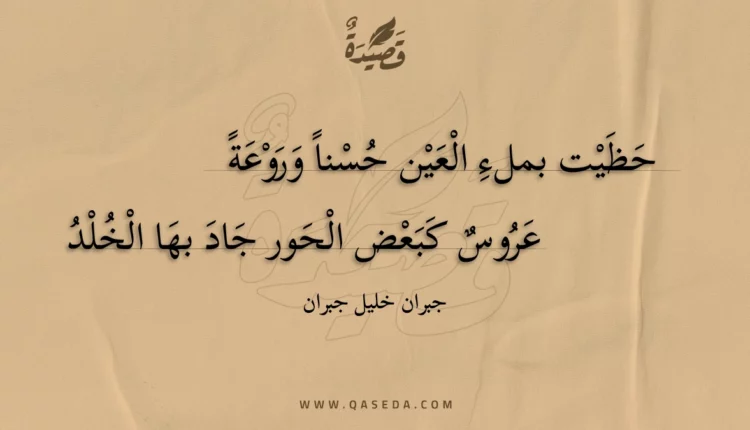 قَصِيْدَةٌ
حَظَيْت بملءِ الْعَيْن حُسْناً وَرَوْعَةً
عَرُوسٌ كَبَعْض الْحَور جَادَ بهَا الْخُلْدُ
جبران خليل جبران
WWW.QASEDA.COM